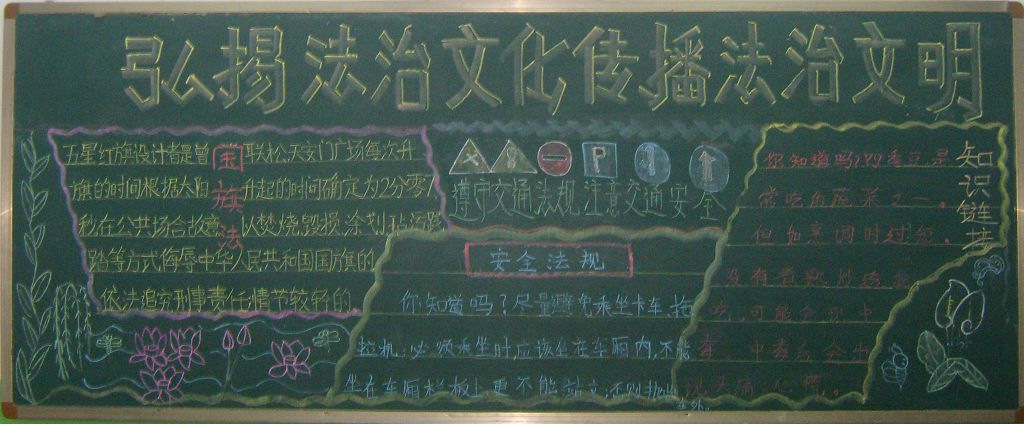 弘揚法治文化传播法治文明
五星红旗设计者是曾联松,天安门广场每次升
旗的时间根据太阳升起的时间确定为2分零7
秒在公共场合故意以焚烧,毁损,涂划,玷污践
踏等方式侮辱中华人民共和国国旗的
依法追究刑事责任;情节较轻的
国旗法
P
遵守交通法规 注意交通安全
安全法规
你知道吗?尽量避免乘坐卡车,拖
拉机;必须乘坐时,应该坐在车厢内,不能
坐在车厢栏板上,更不能站立;否则
车外。
知识链接
你知道吗?四季豆是
常吃的蔬菜之一。
但如烹调时过短。
没有煮熟
吃,可能会
毒 中毒后会出
现头痛